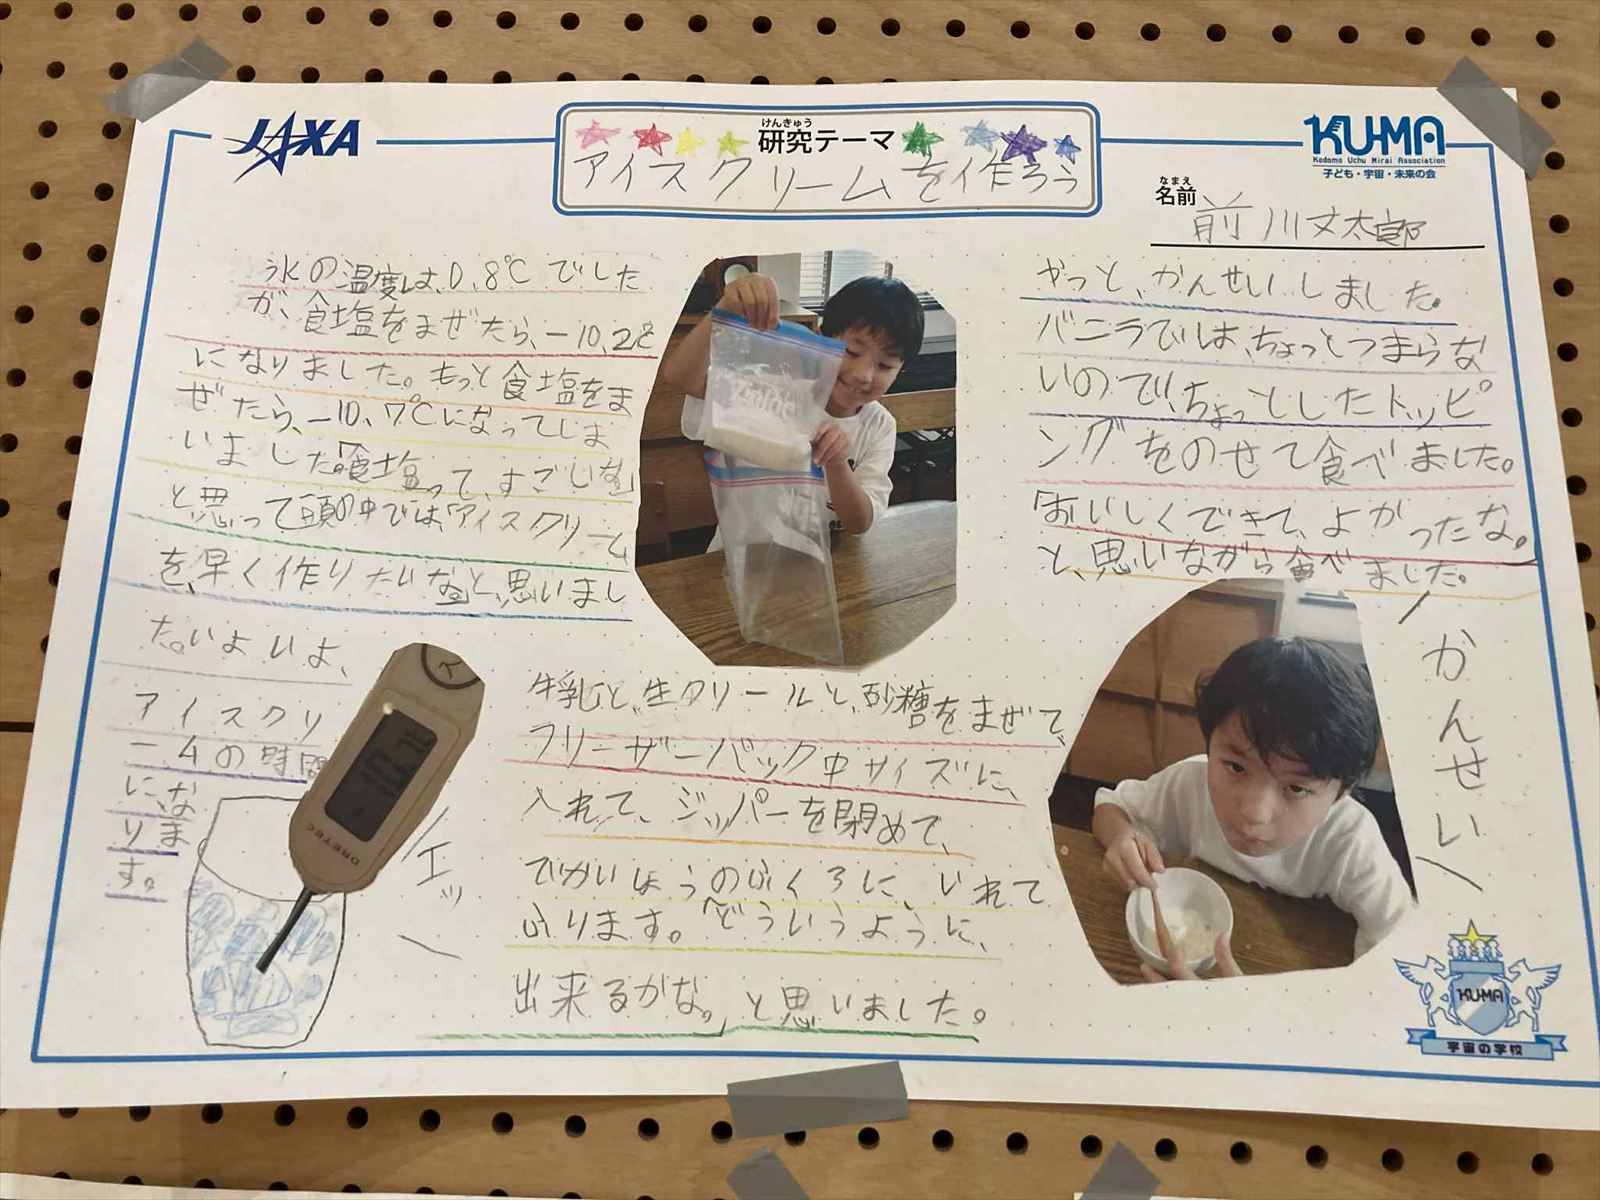 JAXA
けんきゅう
研究テーマ
アイスクリームを作ろう
KU-MA
Kodomo Uchu Mirai Association
子ども・宇宙・未来の会
なまえ
名前
前川丈太郎
氷の温度は、0.8℃でした
が、食塩をまぜたら、－10、2℃
になりました。もっと食塩をま
ぜたら、－10、7℃になってしま
いました。「食塩って、すごいな」
と思って頭の中では、「アイスクリーム
を、早く作りたいな」と、思いまし
た。いよいよ、
アイスクリ
ームの時間
に、な
りま
す。
DRETEC
エッ
牛乳と、生クリールと、砂糖をまぜて、
フリーザーバック中サイズに、
入れて、ジッパーを閉めて、
でかいほうのふくろに、いれて
ふります。「どういうように、
出来るがな。」と思いました。
やっと、かんせいしました。
バニラでは、ちょっとつまらな
いので、ちょっとしたトッピ
ングをのせて食べました。
「おいしくできて、よかったな。」
と、思いながら食べました。
かんせい
KU-MA
宇宙の学校